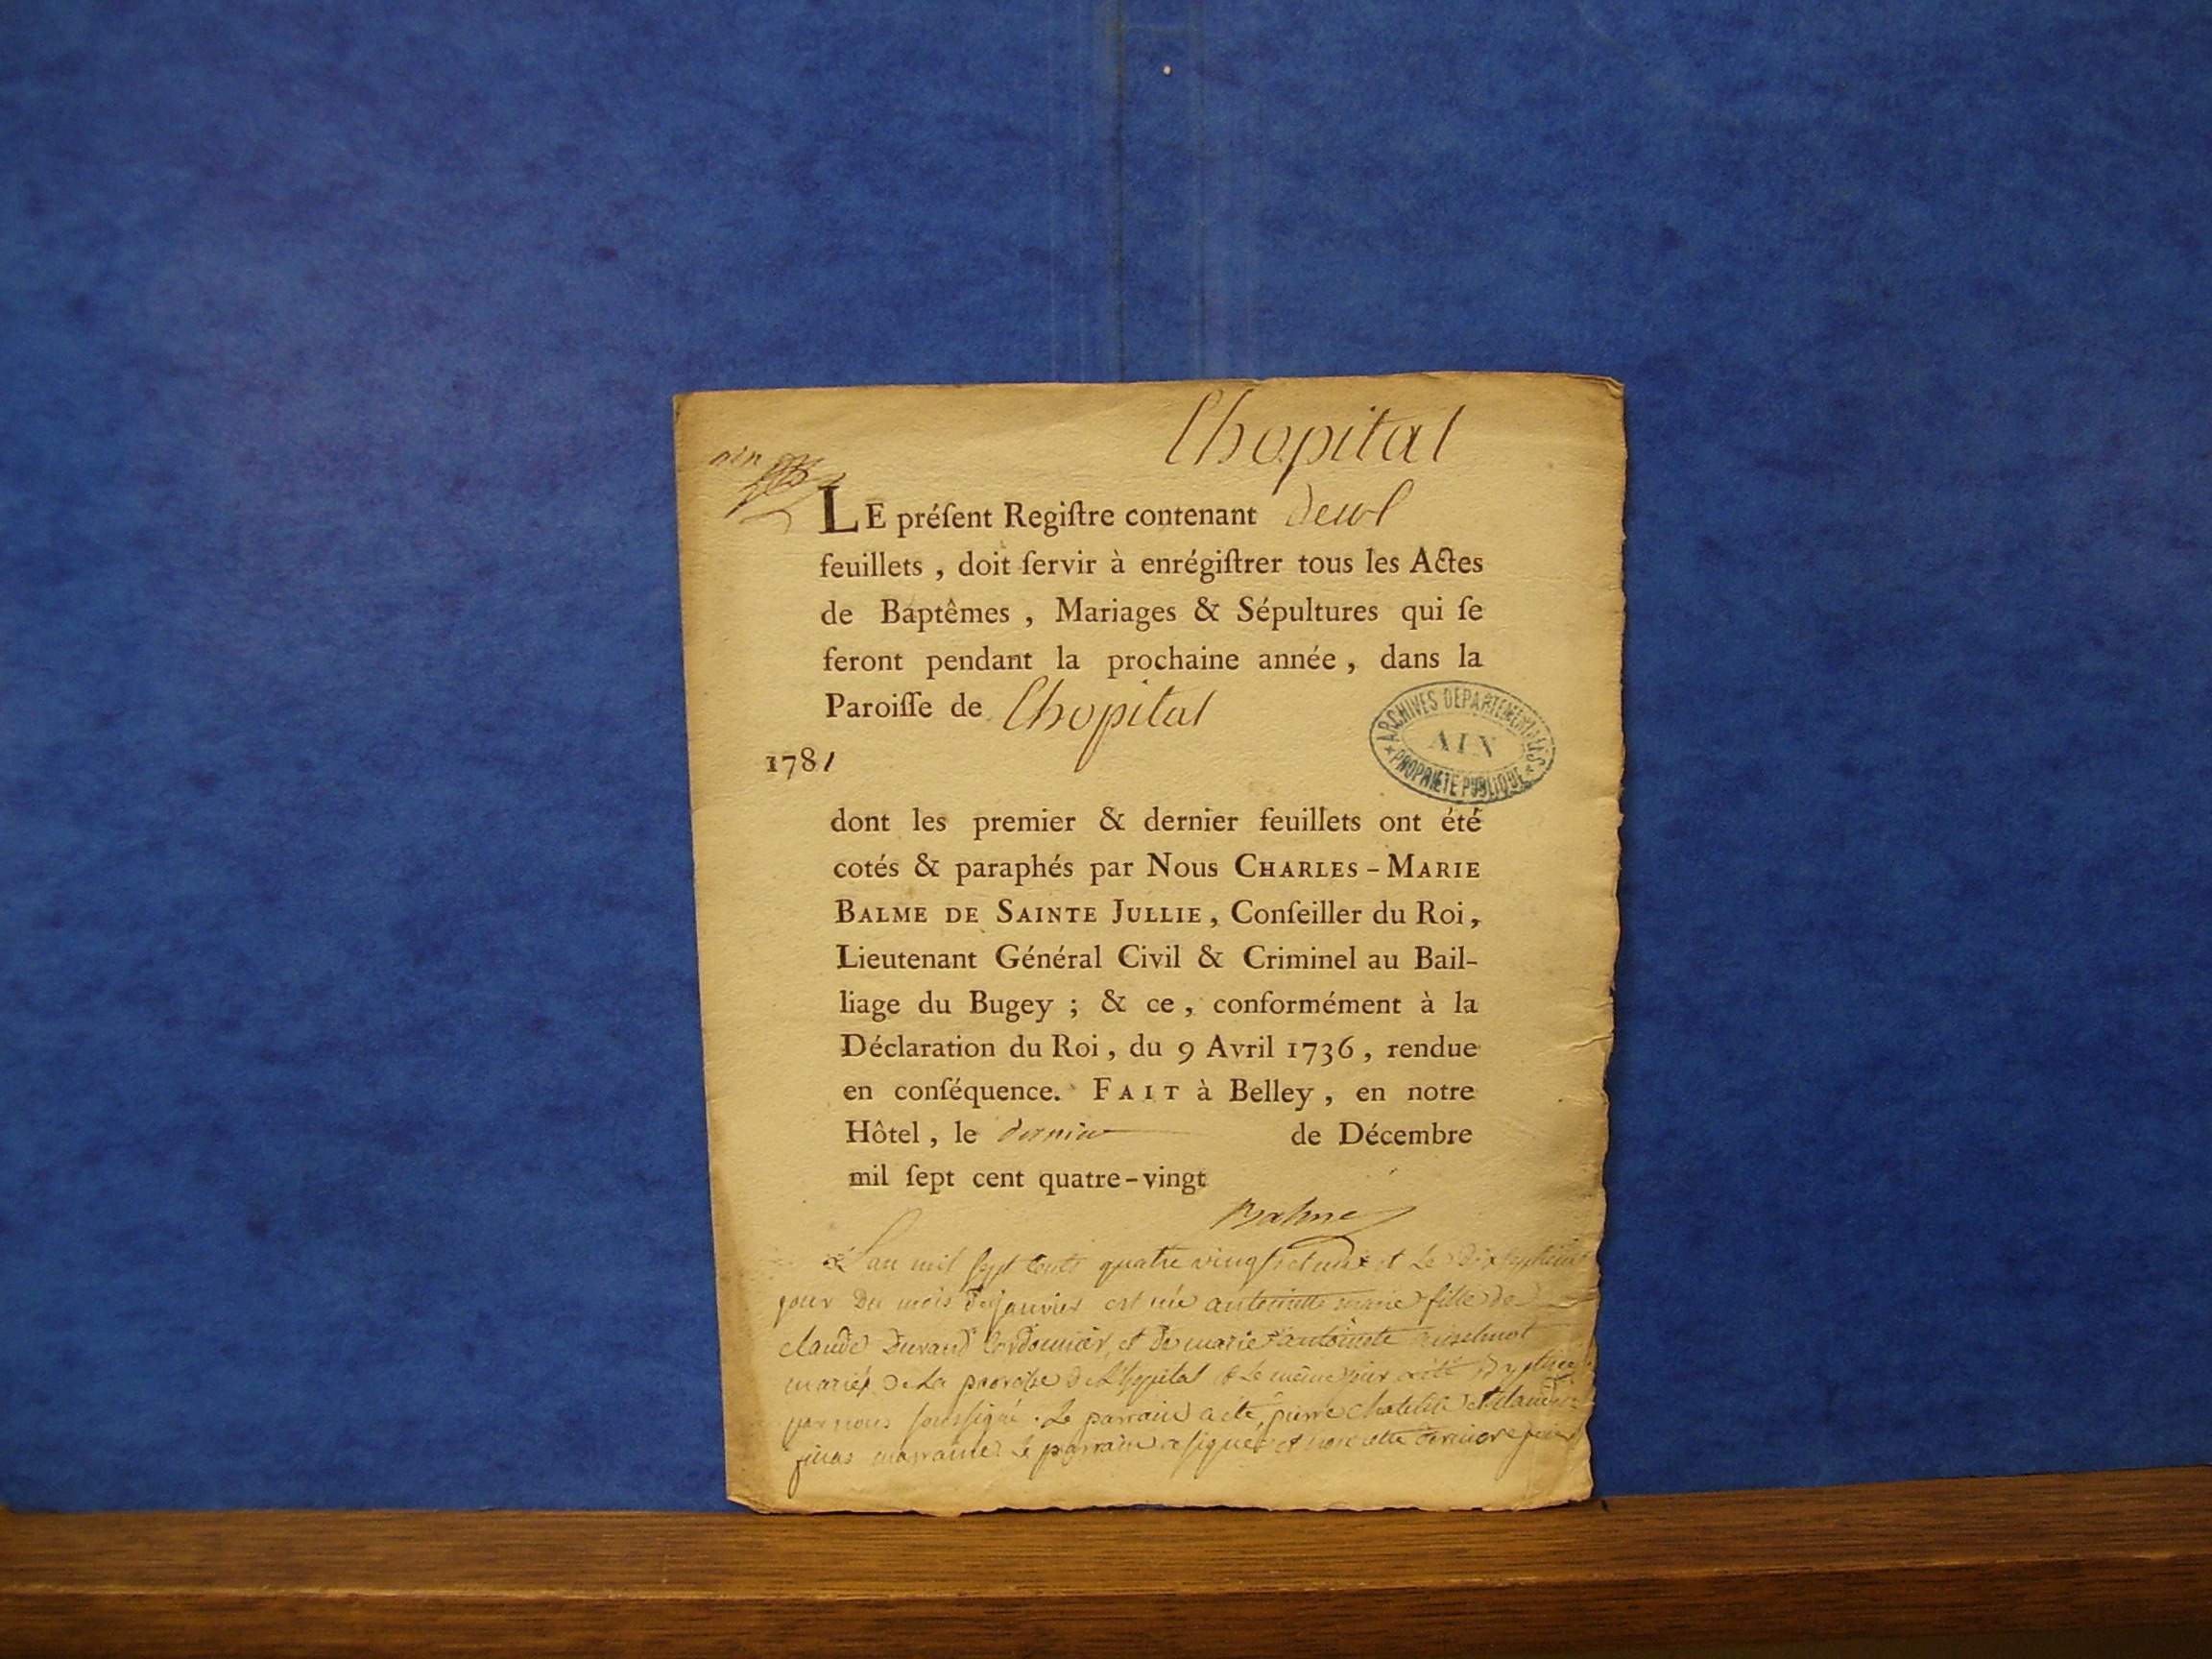 Lhopital
LE préſent Regiſtre contenant deux
feuillets , doit ſervir à enrégiſtrer tous les Actes
de Baptêmes , Mariages & Sépultures qui ſe
feront pendant la prochaine année , dans la
Paroiſſe de Lhopital
ARCHIVES DEPARTEMENTALES
AIN
PROPRIETE PUBLIQUE
1781
dont les premier & dernier feuillets ont été
cotés & paraphés par Nous CHARLES-MARIE
BALME DE SAINTE JULLIE , Conſeiller du Roi ,
Lieutenant Général Civil & Criminel au Bail-
liage du Bugey ; & ce , conformément à la
Déclaration du Roi , du 9 Avril 1736 , rendue
en conſéquence. FAIT à Belley , en notre
Hôtel , le dernier de Décembre
mil ſept cent quatre-vingt
Balme
L'an mil sept cents quatre vingt et un et le dixseptieme
jour du mois de janvier est née antoinette marie fille de
claude Durand Cordonnier, et de marie antoinette
mariés de la paroisse de L'hopital et le même jour a été
par nous soussigné. Le parrain a été pierre et
marraine. Le parrain a signé et non cette derniere